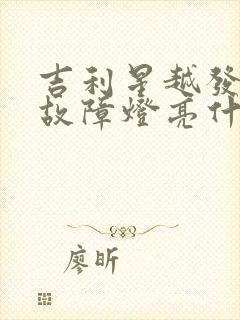 吉利星越發
故障燈亮什
廖昕